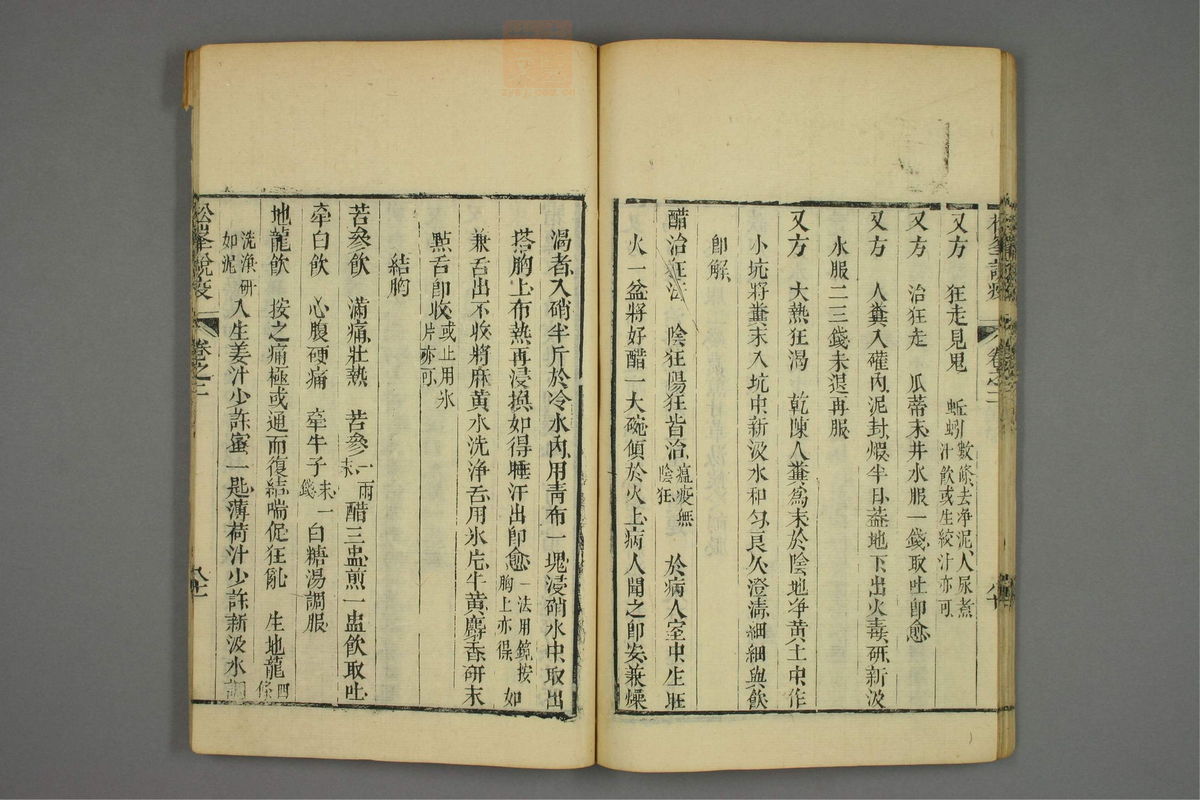 又方　狂走見鬼　蚯蚓數條去净泥人尿煮汁飮或生絞汁亦可
又方　治狂走　瓜蒂末井水服一錢取吐即愈
又方　人糞入確內泥封煆半日盖地下出火毒研新汲
水服二三錢未退再服
又方　大熱狂渴　乾陳人糞爲末於陰地净黃土中作
小坑將糞末入坑中新汲水和匀良久澄淸細細與飮
即解
醋治狂法　陰狂陽狂皆治瘟疫無陰狂　於病人室中生旺
火一盆將好醋一大碗傾於火上病人聞之即安兼燥
卷之二
八十
渴者入硝半斤於冷水內用青布一塊浸硝水中取出
搭胸上布熱再浸換如得睡汗出即愈一法用鏡按胸上亦得　如
兼舌出不收將麻黃水洗淨舌用氷片牛黃麝香研末
點舌即收或止用氷片亦可
結胸
苦參飮　滿痛壯熱　苦參一兩末　醋三盅煎一盅飮取吐
牽白飮　心腹硬痛　牽牛子末一錢　白糖湯調服
地龍飮　按之痛極或通而復結喘促狂亂　生地龍四條
洗淨研如泥　入生姜汁少許蜜一匙薄荷汁少許新汲水調
松峯說疫
卷之二
八十一